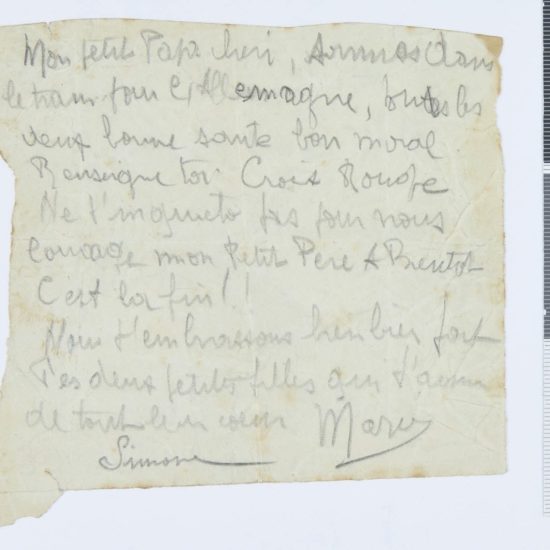 Mon petit Papa cheri, sommes dans
le train pour l'Allemagne, toutes les
deux bonne sante bon moral
Renseigne toi Croix Rouge
Ne t'inquiete pas pour nous
Courage mon Petit Pere A Bientot
C'est la fin!!
Nous t'embrassons bien bien fort
Tes deux petites filles qui t'aiment
de tout leur coeur Marie
Simone